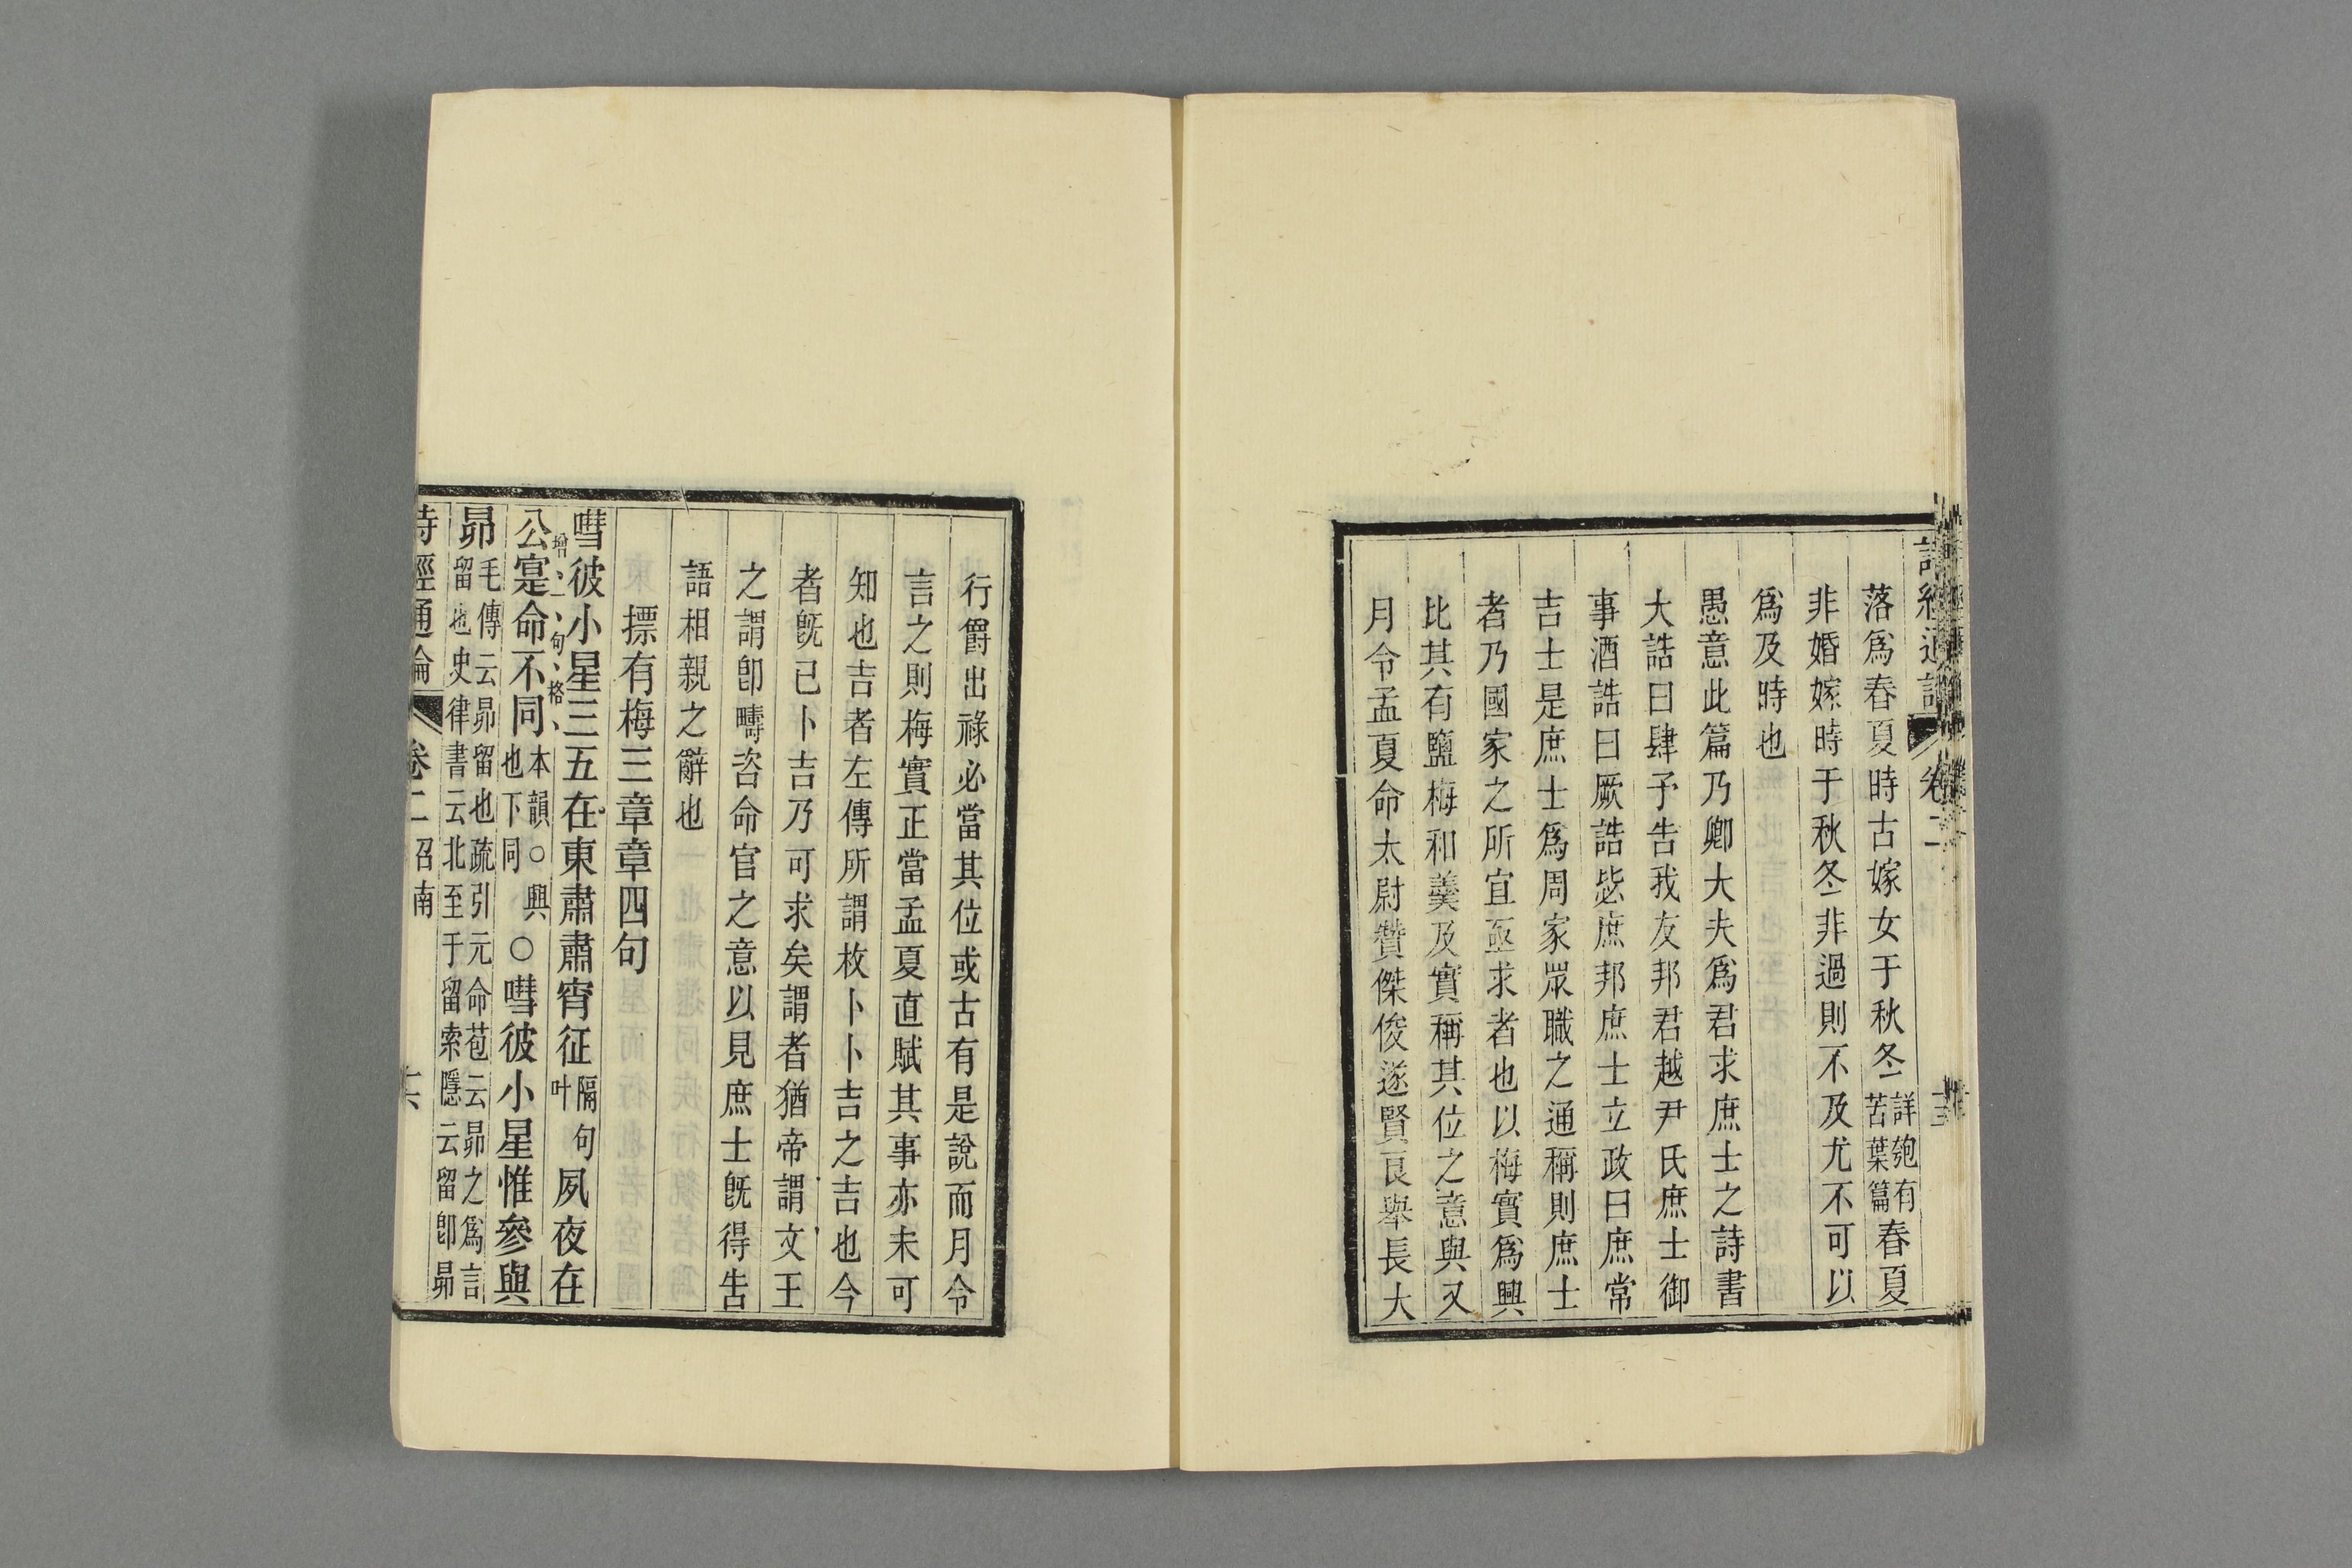 詩經通論 卷二
落爲春夏時古嫁女于秋冬詳匏有苦葉篇春夏
非婚嫁時于秋冬非過則不及尤不可以
爲及時也
愚意此篇乃卿大夫爲君求庶士之詩書
大誥曰肆予告我友邦君越尹氏庶士御
事酒誥曰厥誥毖庶邦庶士立政曰庶常
吉士是庶士爲周家眾職之通稱則庶士
者乃國家之所宜亟求者也以梅實爲興
比其有鹽梅和羹及實稱其位之意與又
月令孟夏命太尉贊傑俊遂賢良舉長大
行爵出祿必當其位或古有是說而月令
言之則梅實正當孟夏直賦其事亦未可
知也吉者左傳所謂枚卜卜吉之吉也今
者旣已卜吉乃可求矣謂者猶帝謂文王
之謂卽疇咨命官之意以見庶士旣得告
語相親之辭也
摽有梅三章章四句
嘒彼小星三五在東肅肅宵征隔句叶夙夜在
增一句格
公寔命不同本韻○興也下同○嘒彼小星惟參與
昴毛傳云昴留也疏引元命苞云昴之爲言留也史律書云北至于留索隱云留卽昴
詩經通論 卷二 召南 十六